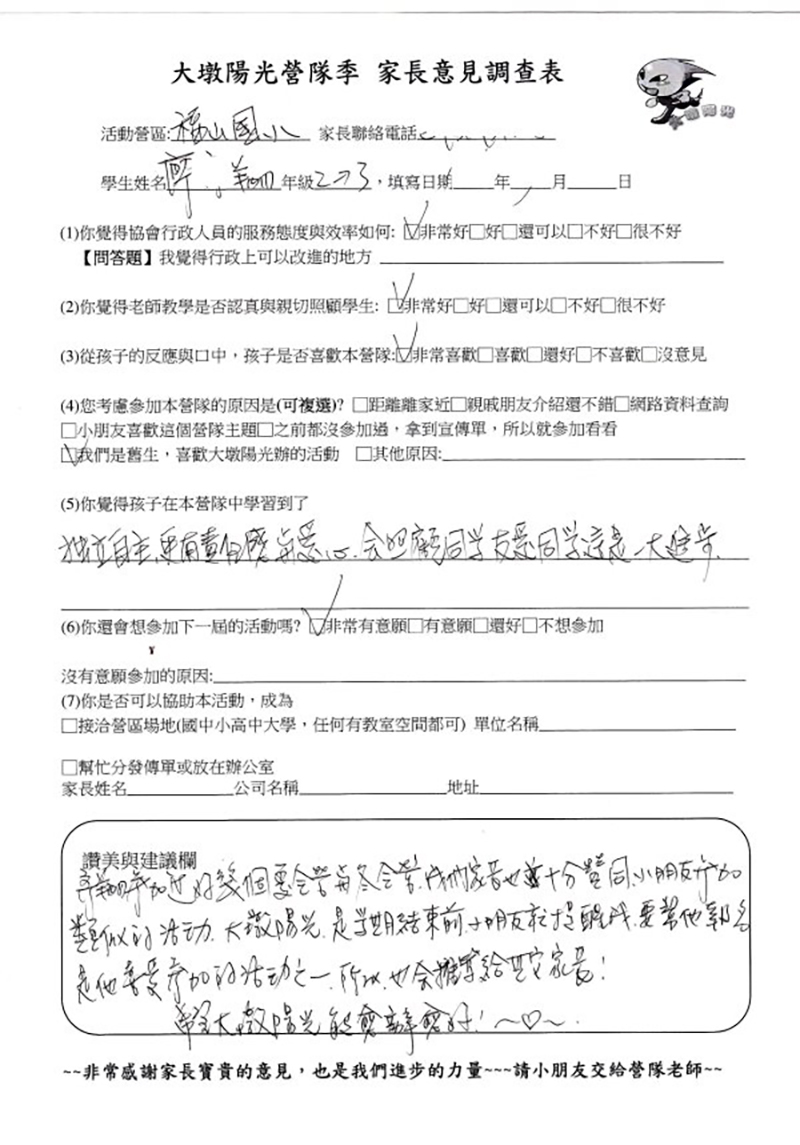 大墩陽光營隊季 家長意見調查表
大墩陽光
活動營區:福山國小 家長聯絡電話
學生姓名 廖 翔 年級2→3,填寫日期 年 月 日
(1)你覺得協會行政人員的服務態度與效率如何: ☑非常好□好□還可以□不好□很不好
【問答題】我覺得行政上可以改進的地方
(2)你覺得老師教學是否認真與親切照顧學生: ☑非常好□好□還可以□不好□很不好
(3)從孩子的反應與口中,孩子是否喜歡本營隊:☑非常喜歡□喜歡□還好□不喜歡□沒意見
(4)您考慮參加本營隊的原因是(可複選)? □距離離家近□親戚朋友介紹還不錯□網路資料查詢
□小朋友喜歡這個營隊主題□之前都沒參加過,拿到宣傳單,所以就參加看看
☑我們是舊生,喜歡大墩陽光辦的活動 □其他原因:
(5)你覺得孩子在本營隊中學習到了
独立自主.更有責任感與愛心.会照顧同学友愛同学這是一大進步.
(6)你還會想參加下一屆的活動嗎? ☑非常有意願□有意願□還好□不想參加
沒有意願參加的原因:
(7)你是否可以協助本活動,成為
□接洽營區場地(國中小高中大學,任何有教室空間都可) 單位名稱
□幫忙分發傳單或放在辦公室
家長姓名 公司名稱 地址
讚美與建議欄
翔參加过好幾個夏令營與冬令營.我們家長也十分贊同.小朋友參加
類似的活动.大墩陽光.是学期結束前.小朋友就提醒我.要幫他報名
是他喜愛参加的活动之一.所以.也会推薦給其它家長!
希望大墩陽光能愈辦愈好!~♡~.
~~非常感謝家長寶貴的意見,也是我們進步的力量~~~請小朋友交給營隊老師~~